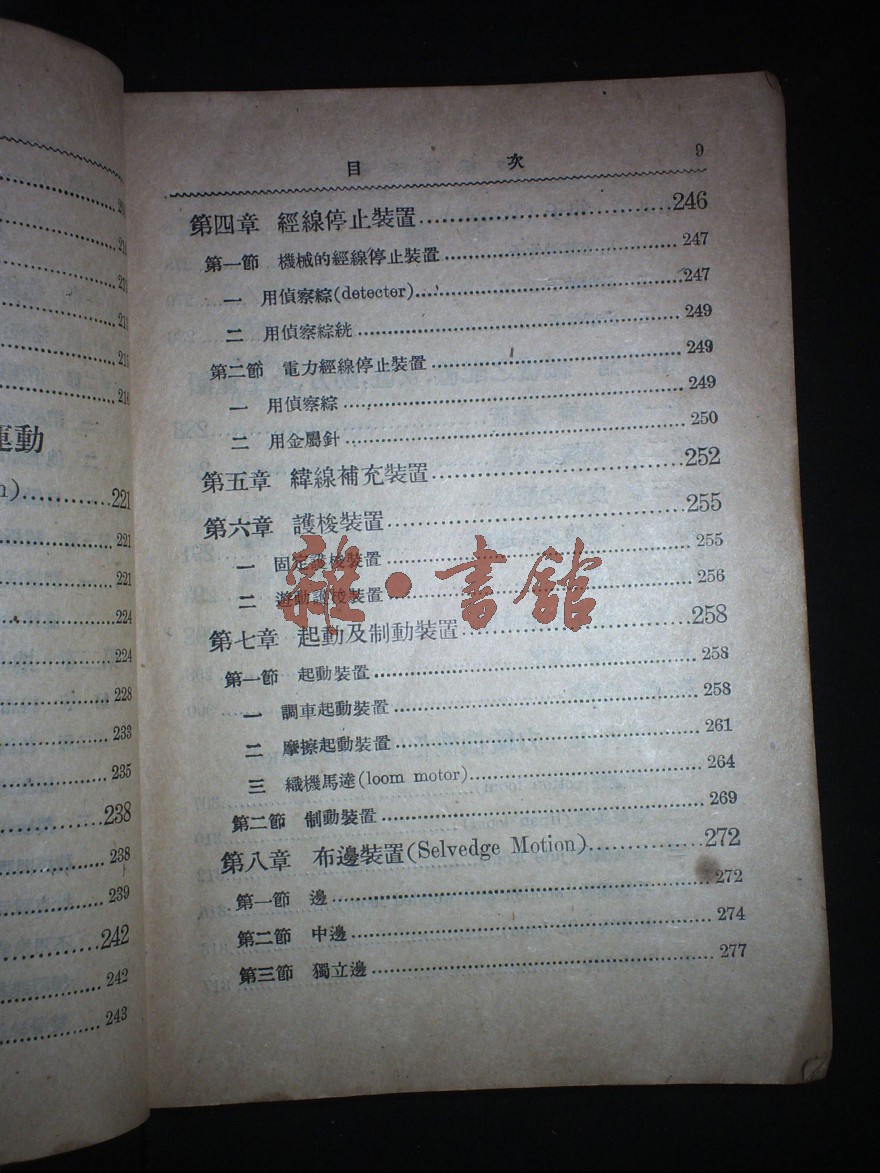 運動
n).........221
221
221
224
224
228
233
235
238
238
239
242
242
243
目 次 9
第四章 經線停止裝置.........246
第一節 機械的經線停止裝置.........247
一 用偵察綜(detecter).........247
二 用偵察綜絖.........249
第二節 電力經線停止裝置.........249
一 用偵察綜.........249
二 用金屬針.........250
第五章 緯線補充裝置.........252
第六章 護梭裝置.........255
一 固定護梭裝置.........255
二 遊動護梭裝置.........256
第七章 起動及制動裝置.........258
第一節 起動裝置.........258
一 調車起動裝置.........258
二 摩擦起動裝置.........261
三 織機馬達(loom motor).........264
第二節 制動裝置.........269
第八章 布邊裝置(Selvedge Motion).........272
第一節 邊.........272
第二節 中邊.........274
第三節 獨立邊.........277
雜·書館